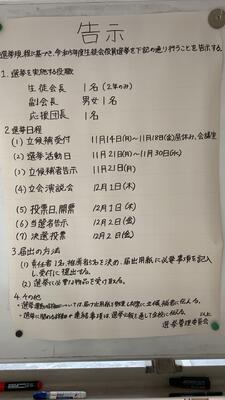 告示
選挙規程に基づき、令和5年度生徒会役員選挙を下記の通り行うことを告示する。
1.選挙を実施する役職
生徒会長 1名(2年のみ)
副会長 男女1名
応援団長 1名
2.選挙日程
(1)立候補受付 11月14日(月)〜11月18日(金)昼休み、会議室
(2)選挙活動日 11月21日(月)〜11月30日(水)
(3)立候補者告示 11月21日(月)
(4)立会演説会 12月1日(木)
(5)投票日、開票 12月1日(木)
(6)当選者告示 12月2日(金)
(7)決選投票 12月2日(金)
3.届出の方法
(1)責任者1名、推薦者5名を決め、届出用紙に必要事項を記入
し受付に提出する。
(2)選挙に必要な物品を受け取る。
4.その他
・選挙運動の詳細については、届け出用紙を受理した際に立候補者に伝える。
・選挙に関わる詳細や連絡事項は、選管を通して全校に伝える。
以上
選挙管理委員会